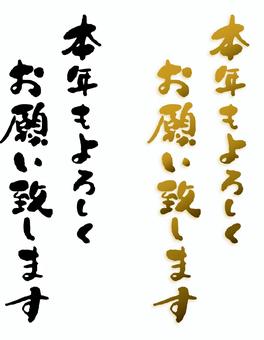 本年もよろしく
お願い致します
本年もよろしく
お願い致します